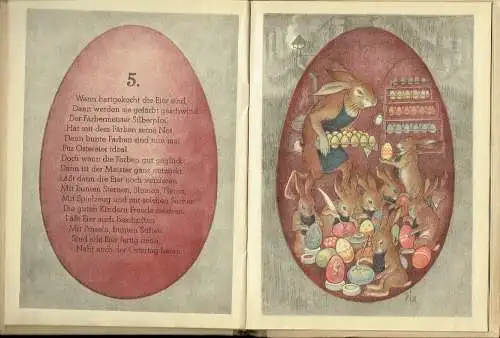 5.
Wenn hartgekocht die Eier sind,
Dann werden sie gefärbt geschwind.
Der Färbermeister Silberpfot
Hat mit dem Färben seine Not,
Denn bunte Farben sind nun mal
Für Ostereier ideal.
Doch wenn die Farben gut geglückt,
Dann ist der Meister ganz
Läßt dann die Eier noch verzieren
Mit bunten Sternen, Blumen, Tieren,
Mit Spielzeug und mit solchen Sachen
Die guten Kindern Freude machen.
Läßt Eier auch beschriften
Mit Pinseln, bunten Stiften.
Sind alle Eier fertig dann,
Naht auch der Ostertag heran.